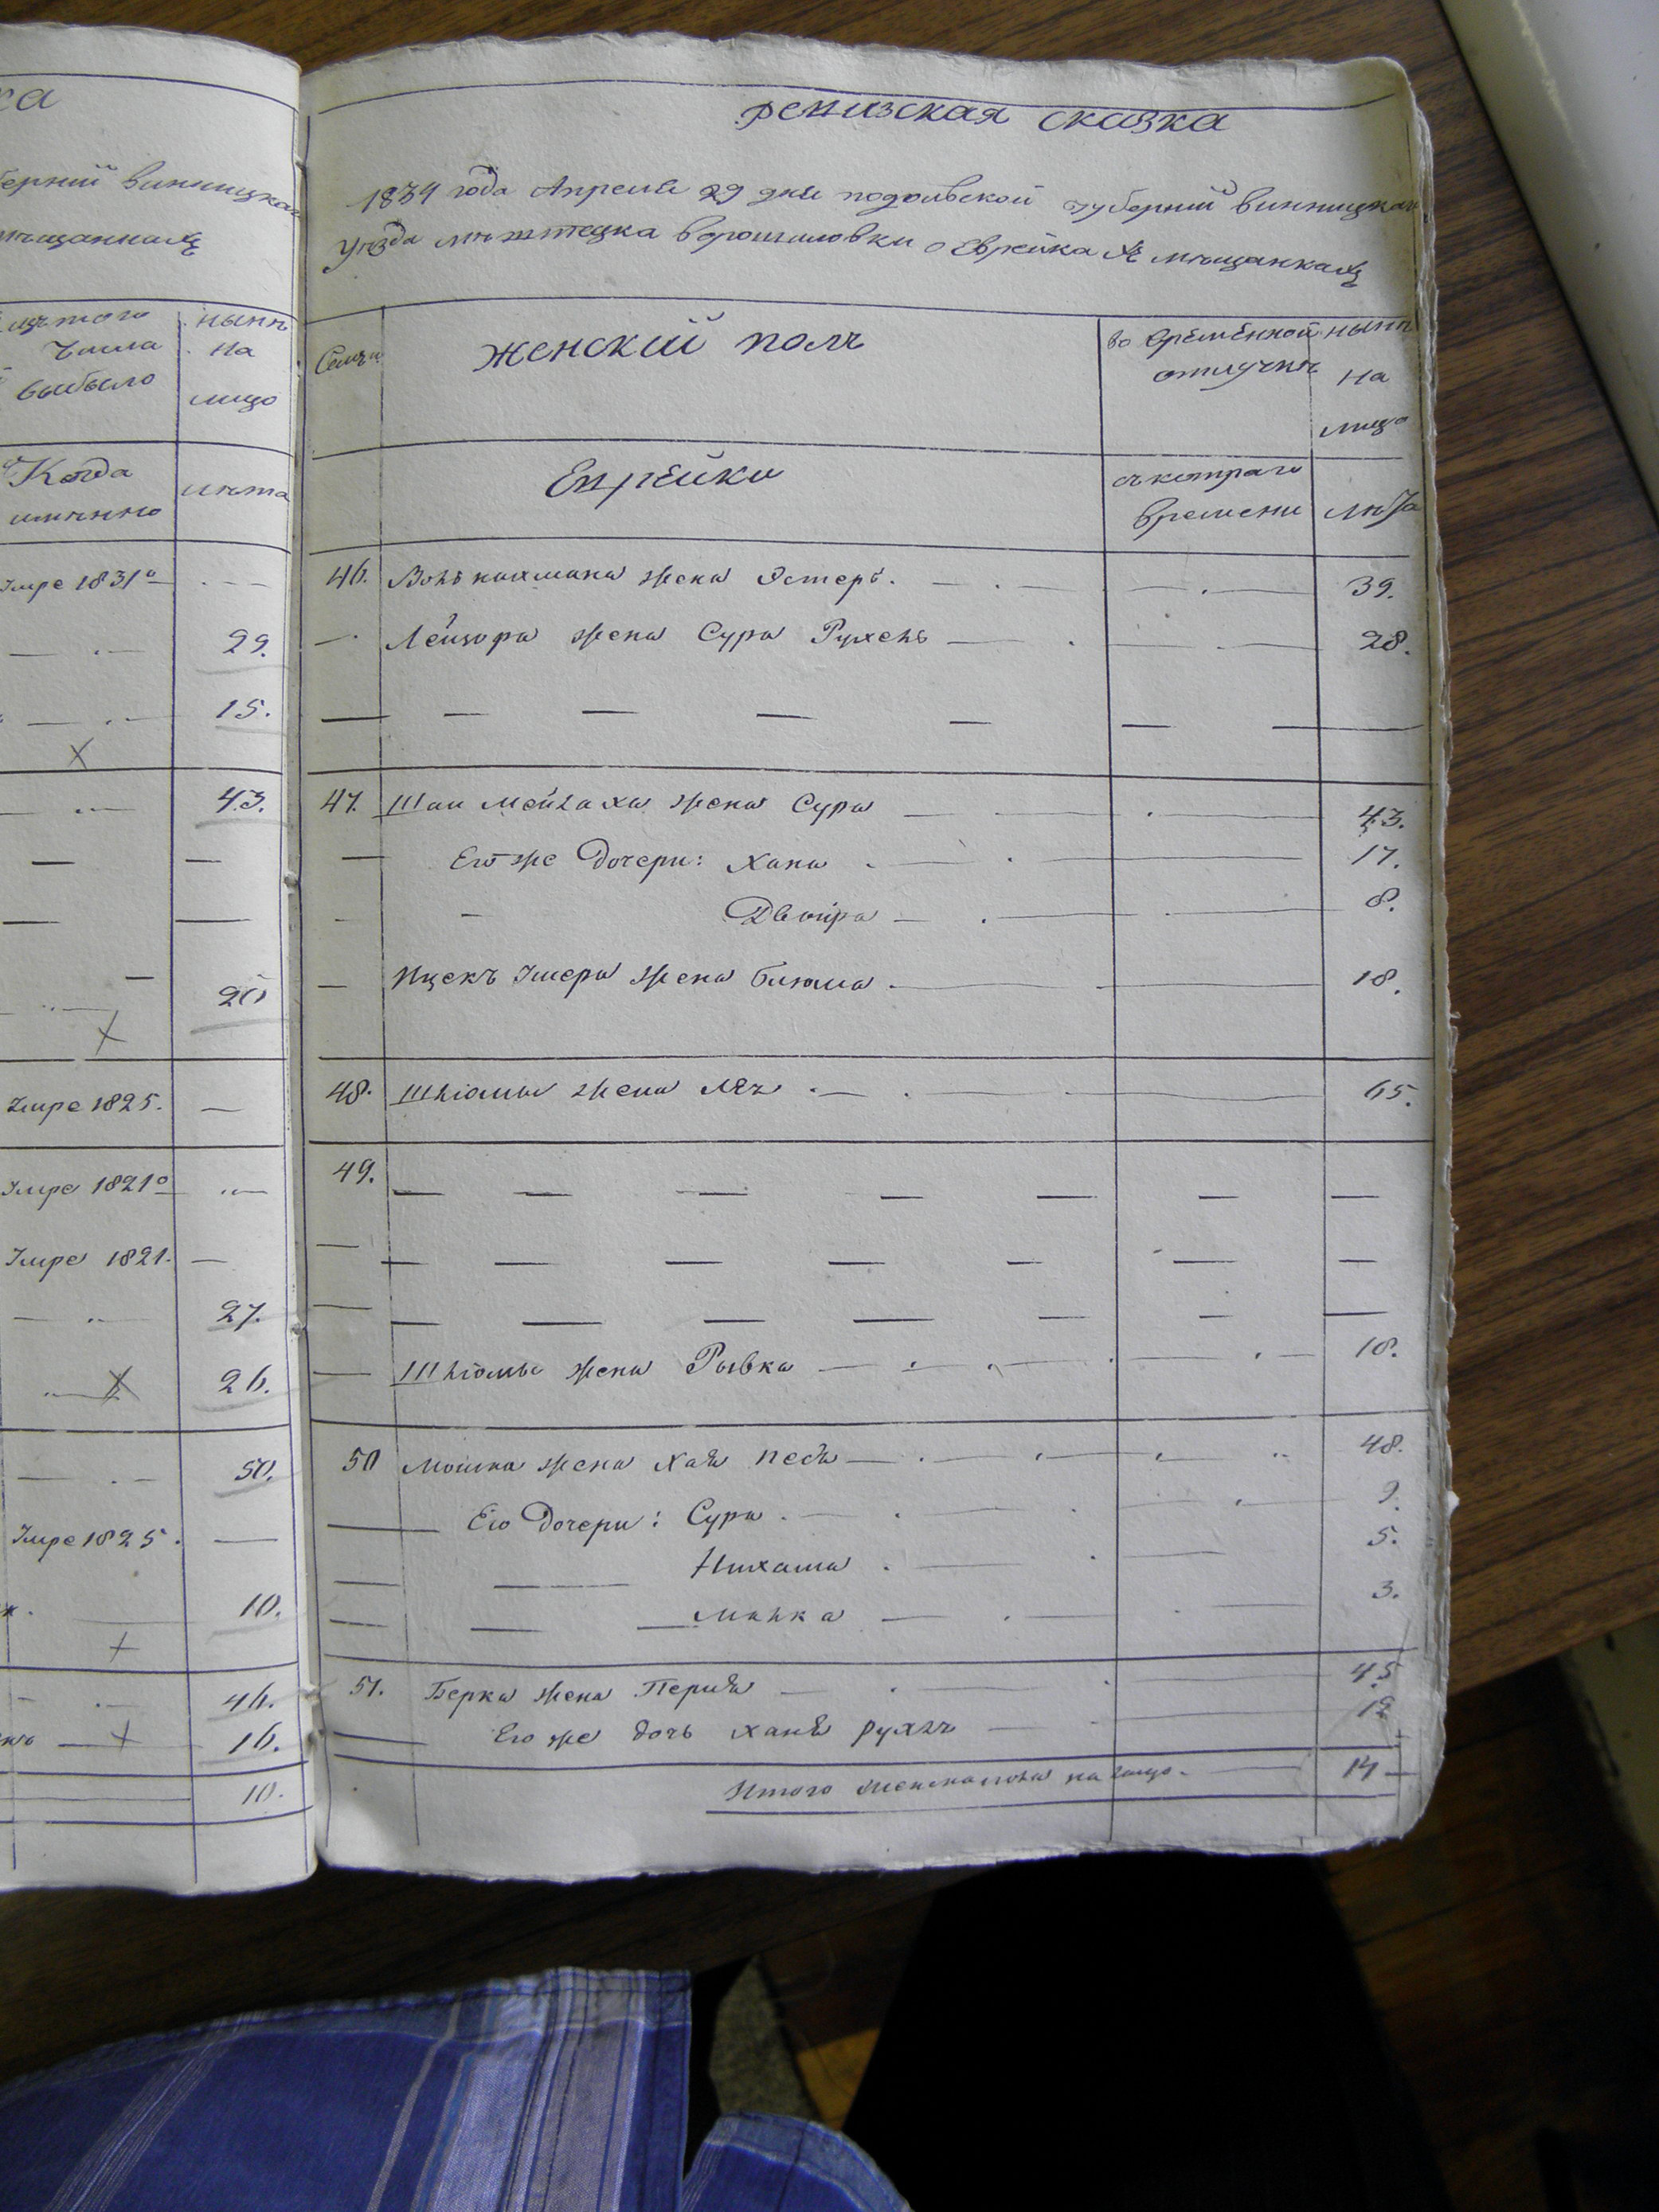 ка
берній винницкаго
мѣщанкахъ
числа
выбыло
нынѣ
на
лицо
Когда
именно
лѣта
Умре 1831º — . — —
— . — 29.
— . — 15.
X
— . — 43.
— —
— —
— 20
X
Умре 1825. —
Умре 1821º . —
Умре 1821. —
— . — 27.
X 26.
— . — 50.
Умре 1825. —
10.
+
— . — 46.
— + 16.
10.
ревизская сказка
1834 года Апреля 29 дня подольской губерній винницкаго
уѣзда мѣстечка ворошиловки о Еврейкахъ мѣщанкахъ
Семьи
женскій полъ
во временной
отлучкѣ
нынѣ
на
лицо
Еврейки
съ котораго
времени
лѣта
46. Вольнахмана жена Эстеръ. — . — — . — 39.
— . Лейзора жена Сура Рухель — . — . — 28.
— — — — — — —
47. Шаи Мейлаха жена Сура — . — 43.
— Его же дочери: Хана . — . — 17.
- - Двойра — . — 8.
— Ицекъ Умера жена Блюма . — 18.
48. Шліомы жена Лѣя . — . — 65.
49. — — — — — — —
— — — — — — — —
— — — — — — — —
— Шліомы жена Рывка — . — . — 18.
50 Мошка жена Хая песя — . — . — 48.
— Его дочери: Сура . — . — 9.
— — Нихама . — . — 5.
— — — Малка — . — . — 3.
51. Берка жена Перля — . — . — 45
— Его же дочь ханя рухль — . — 12
Итого женска пола на лицо. — 14 —